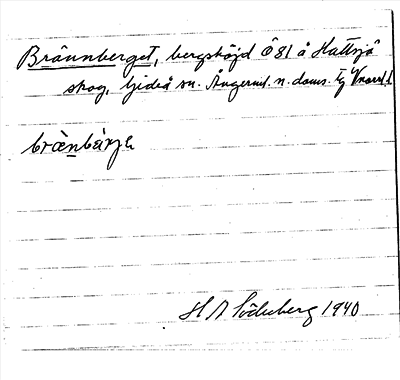 Brännberget, bergshöjd Ö 81 å Hattsjö
skog, Gideå sn. Ångerml. n. doms.
bræ̀nbàrje
H A Söderberg 1940